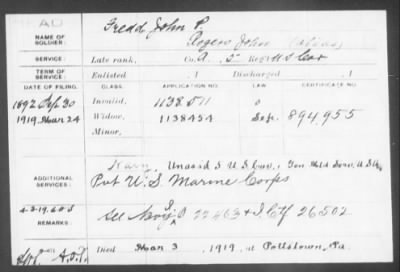 AU
Fredd John P.
NAME OF SOLDIER:
Rogers John (Alias)
SERVICE: Late rank, Co. A. 5 Reg't U S Cav
TERM OF SERVICE: Enlisted , 1 Discharged , 1
DATE OF FILING. CLASS. APPLICATION NO. LAW. CERTIFICATE NO.
1892 Sept 30 Invalid, 1138511 o
1919 Mar 24 Widow, 1138454 Sep. 894,955
Minor,
ADDITIONAL SERVICES: Navy, Unassd S. U.S. Cav., Gen
Pvt U.S. Marine Corps
REMARKS: See Navy 22463 + 26502
Died Mar 3 , 1919, at Pottstown, Pa.